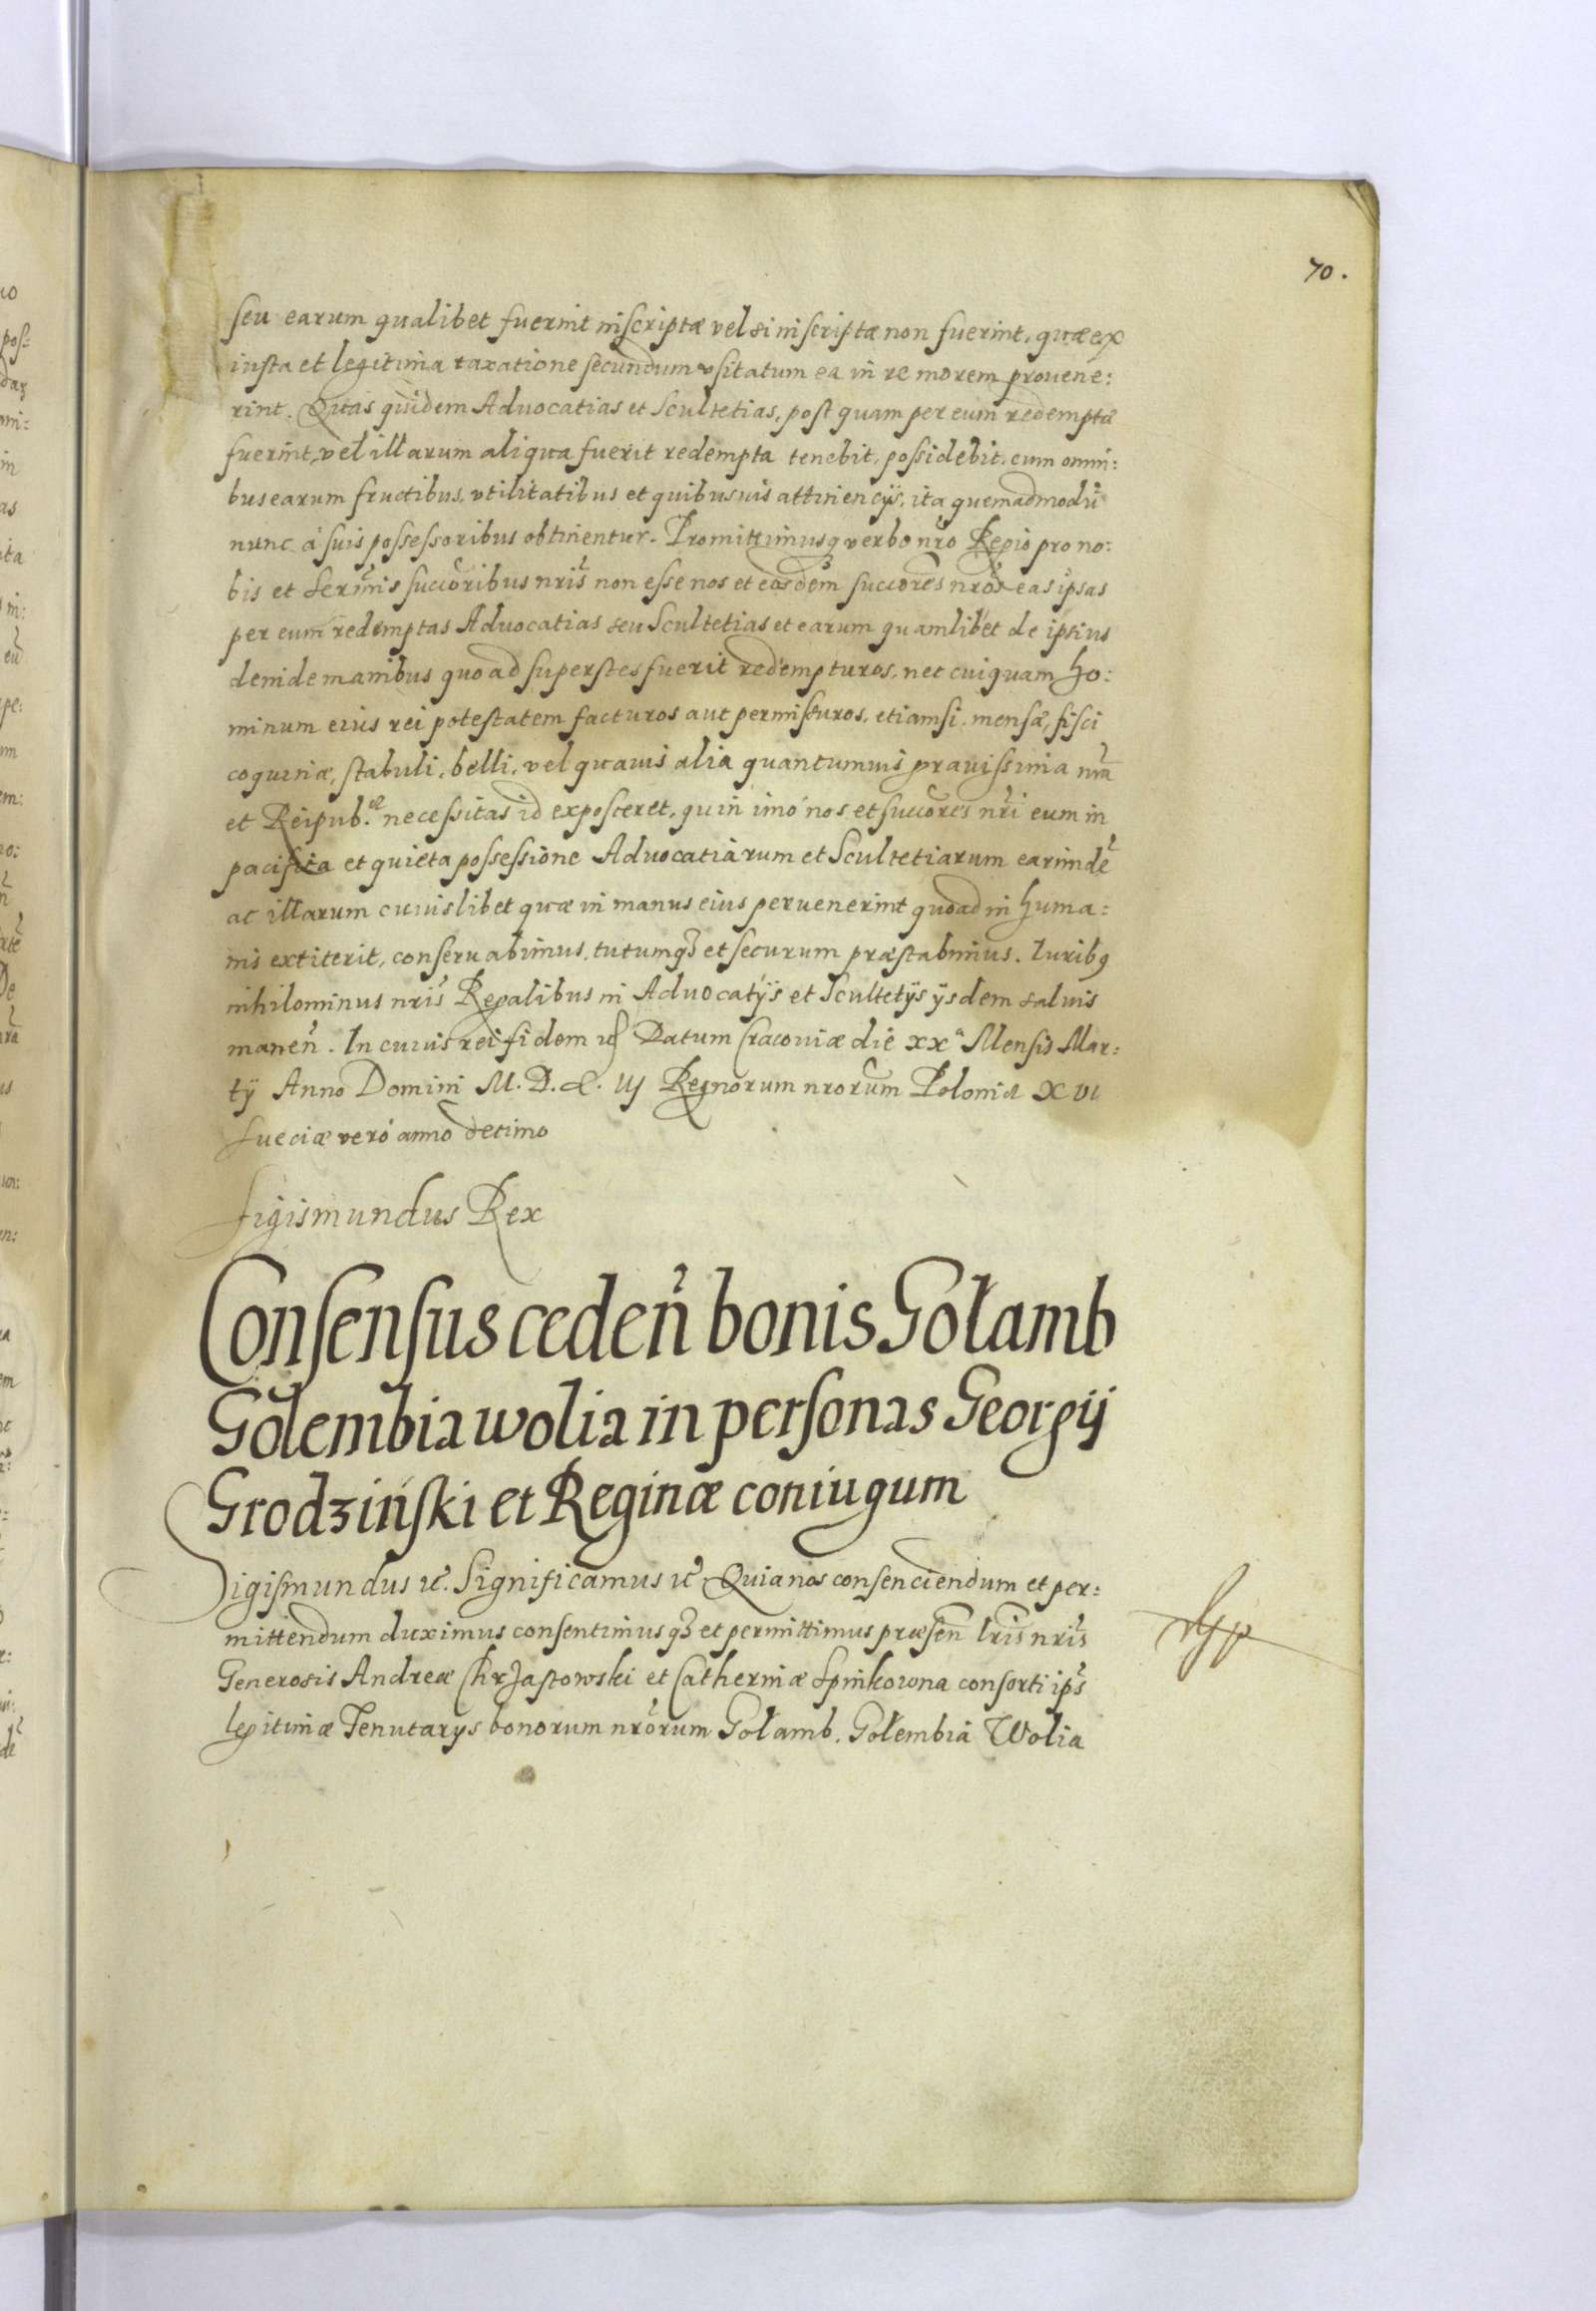 70.
seu earum qualibet fuerint inscriptæ vel si inscriptæ non fuerint, quæ ex
iusta et legitima taxatione secundum vsitatum ea in re morem prouene:
rint. Quas quidem Aduocatias et Scultetias, post quam per eum redemptæ
fuerint, vel illarum aliqua fuerit redempta tenebit, possidebit, cum omni:
bus earum fructibus, vtilitatibus et quibusuis attinencijs, ita quemadmodũ
nunc à suis possessoribus obtinentur. Promittimusq verbo nro Regio pro no:
bis et Sermis succoribus nris non esse nos et eosdem succores nros eas ipsas
per eum redemptas Aduocatias seu Scultetias et earum quamlibet de ipsius
deinde manibus quoad superstes fuerit redempturos, nec cuiquam ho:
minum eius rei potestatem facturos aut permissuros, etiamsi mensæ, fisci
coquinæ, stabuli, belli, vel quauis alia quantumuis grauissima nra
et Reipub. necessitas id exposceret, quin imò nos et succores nri eum in
pacifica et quieta possessione Aduocatiarum et Scultetiarum earundẽ
ac illarum cuiuslibet quæ in manus eius peruenerint quoad in huma:
nis extiterit, conseruabimus, tutumq3 et securum præstabimus. Iurib9
nihilominus nris Regalibus in Aduocatijs et Scultetijs ijsdem saluis
maneñ. In cuius rei fidem Datum Cracouiæ die xxa Mensis Mar:
tij Anno Domini M. D. C. iij Regnorum nrorum Poloniæ XVI
Sueciæ verò anno decimo
Sigismundus Rex
Consensus cedeñ bonis Gołamb
Gołembia wolia in personas Georgij
Grodziński et Reginæ coniugum
Sigismundus &c. Significamus &c Quia nos consenciendum et per:
mittendum duximus consentimusq3 et permittimus præseñ lris nris
Generosis Andreæ Chrząstowski et Catherinæ Spinkowna consorti ips
legitimæ Tenutarijs bonorum nrorum Gołamb. Gołembia Wolia